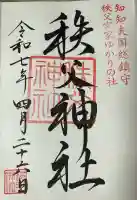 知知夫国総鎮守
秩父宮家ゆかりの社
秩父神社
令和七年四月二十三日